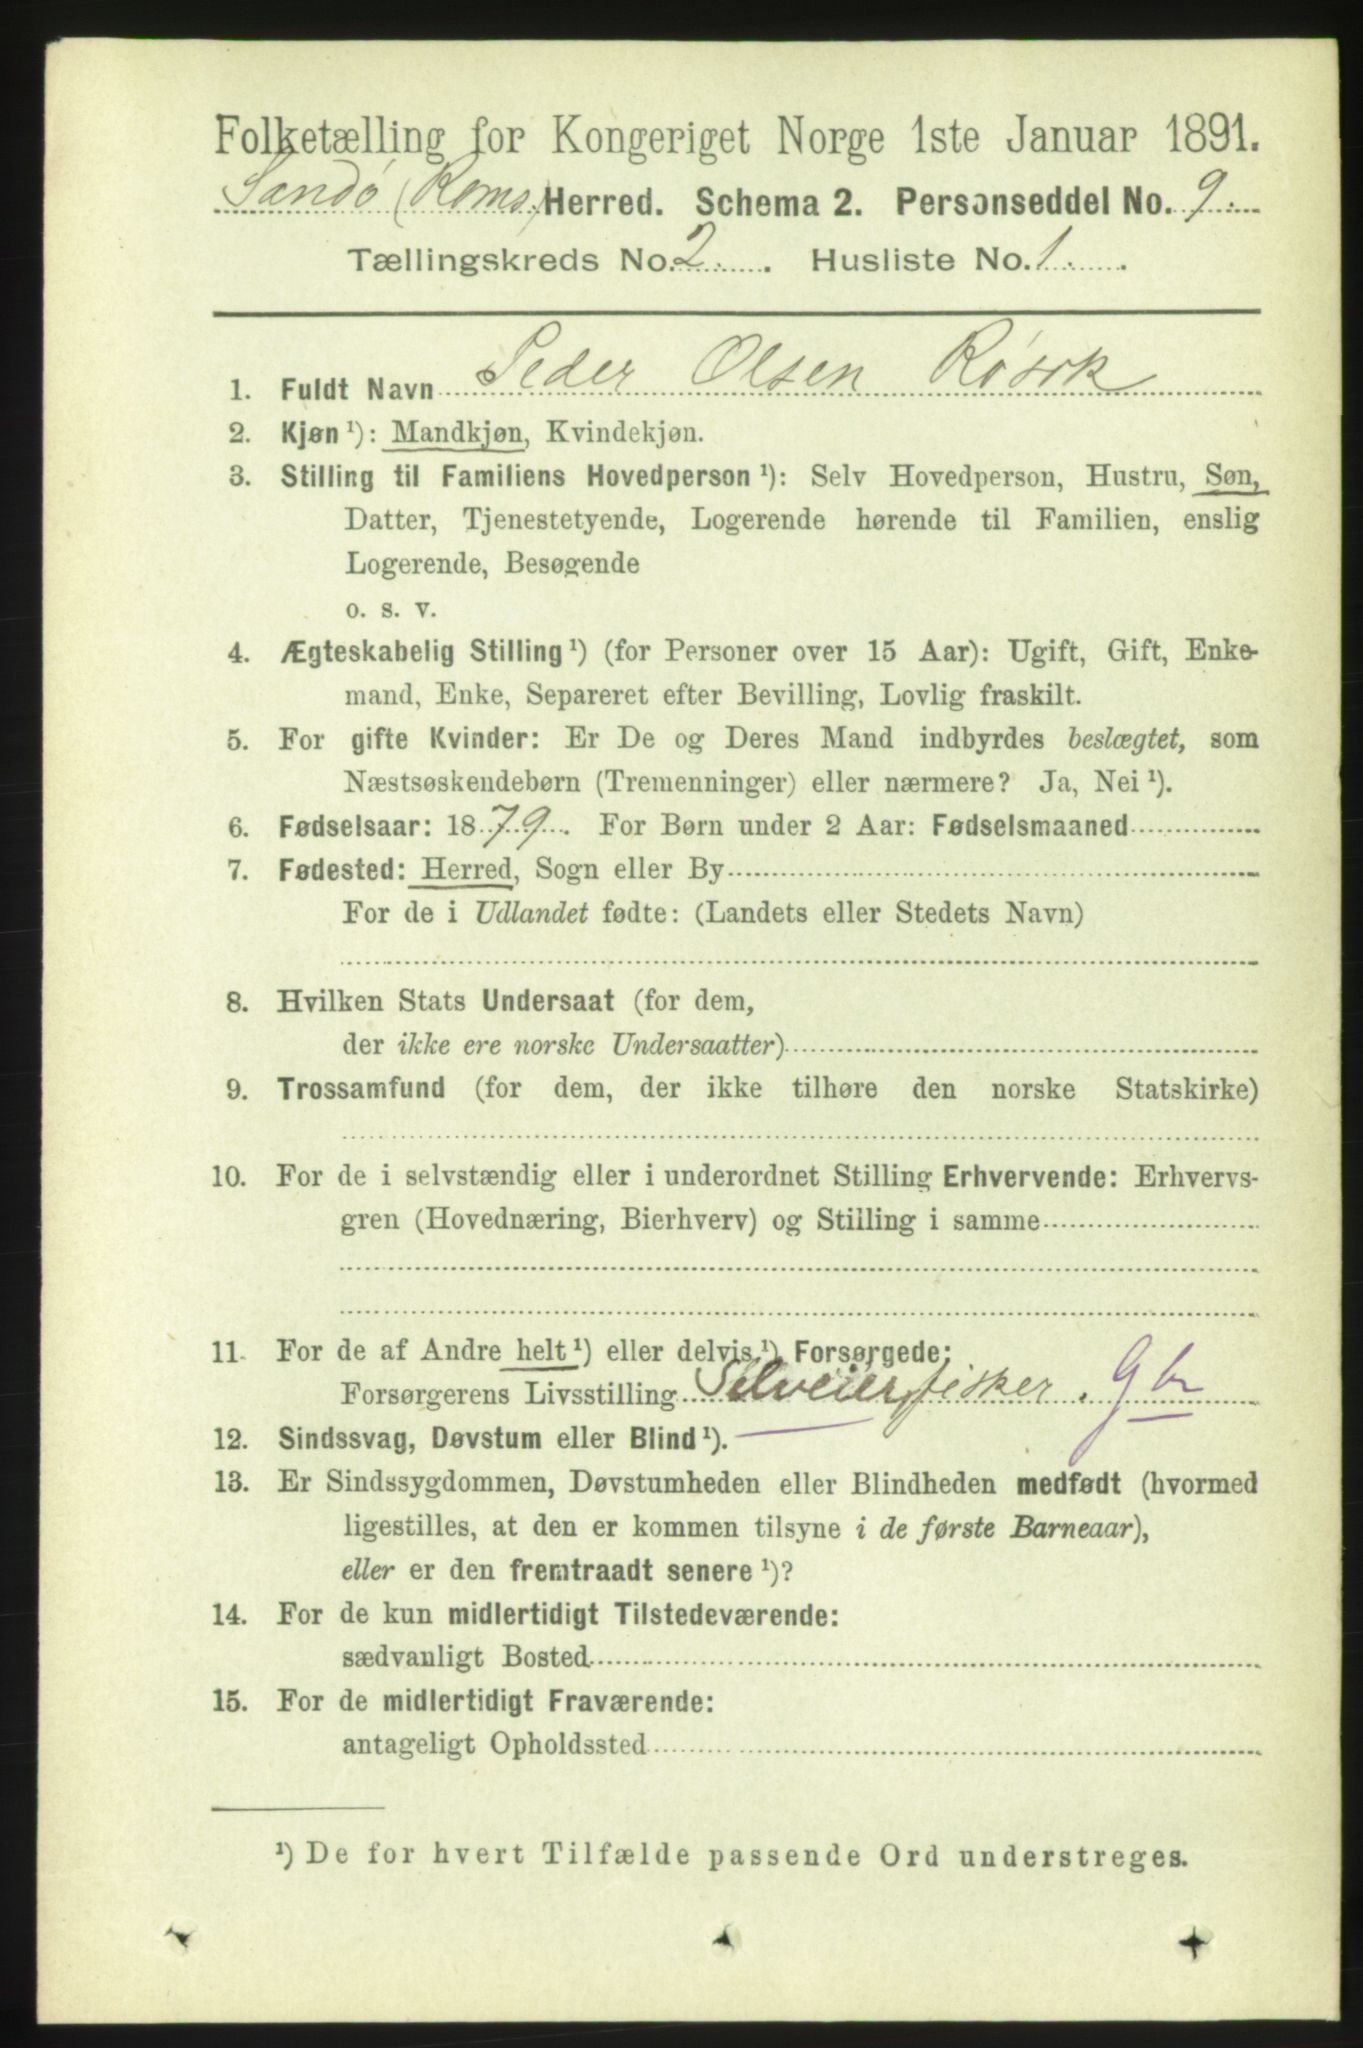 Folketælling for Kongeriget Norge 1ste Januar 1891.
Sandø (Roms.) Herred. Schema 2. Personseddel No. 9.
Tællingskreds No. 2. Husliste No. 1.
1. Fuldt Navn Peder Olsen Røsok
2. Kjøn ¹): Mandkjøn, Kvindekjøn.
3. Stilling til Familiens Hovedperson ¹): Selv Hovedperson, Hustru, Søn,
Datter, Tjenestetyende, Logerende hørende til Familien, enslig
Logerende, Besøgende
o. s. v.
4. Ægteskabelig Stilling ¹) (for Personer over 15 Aar): Ugift, Gift, Enke-
mand, Enke, Separeret efter Bevilling, Lovlig fraskilt.
5. For gifte Kvinder: Er De og Deres Mand indbyrdes beslægtet, som
Næstsøskendebørn (Tremenninger) eller nærmere? Ja, Nei ¹).
6. Fødselsaar: 1879. For Børn under 2 Aar: Fødselsmaaned
7. Fødested: Herred, Sogn eller By
For de i Udlandet fødte: (Landets eller Stedets Navn)
8. Hvilken Stats Undersaat (for dem,
der ikke ere norske Undersaatter)
9. Trossamfund (for dem, der ikke tilhøre den norske Statskirke)
10. For de i selvstændig eller i underordnet Stilling Erhvervende: Erhvervs-
gren (Hovednæring, Bierhverv) og Stilling i samme
11. For de af Andre helt ¹) eller delvis ¹) Forsørgede:
Forsørgerens Livsstilling Selveier, fisker. Gbr
12. Sindssvag, Døvstum eller Blind ¹).
13. Er Sindssygdommen, Døvstumheden eller Blindheden medfødt (hvormed
ligestilles, at den er kommen tilsyne i de første Barneaar),
eller er den fremtraadt senere ¹)?
14. For de kun midlertidigt Tilstedeværende:
sædvanligt Bosted
15. For de midlertidigt Fraværende:
antageligt Opholdssted
¹) De for hvert Tilfælde passende Ord understreges.